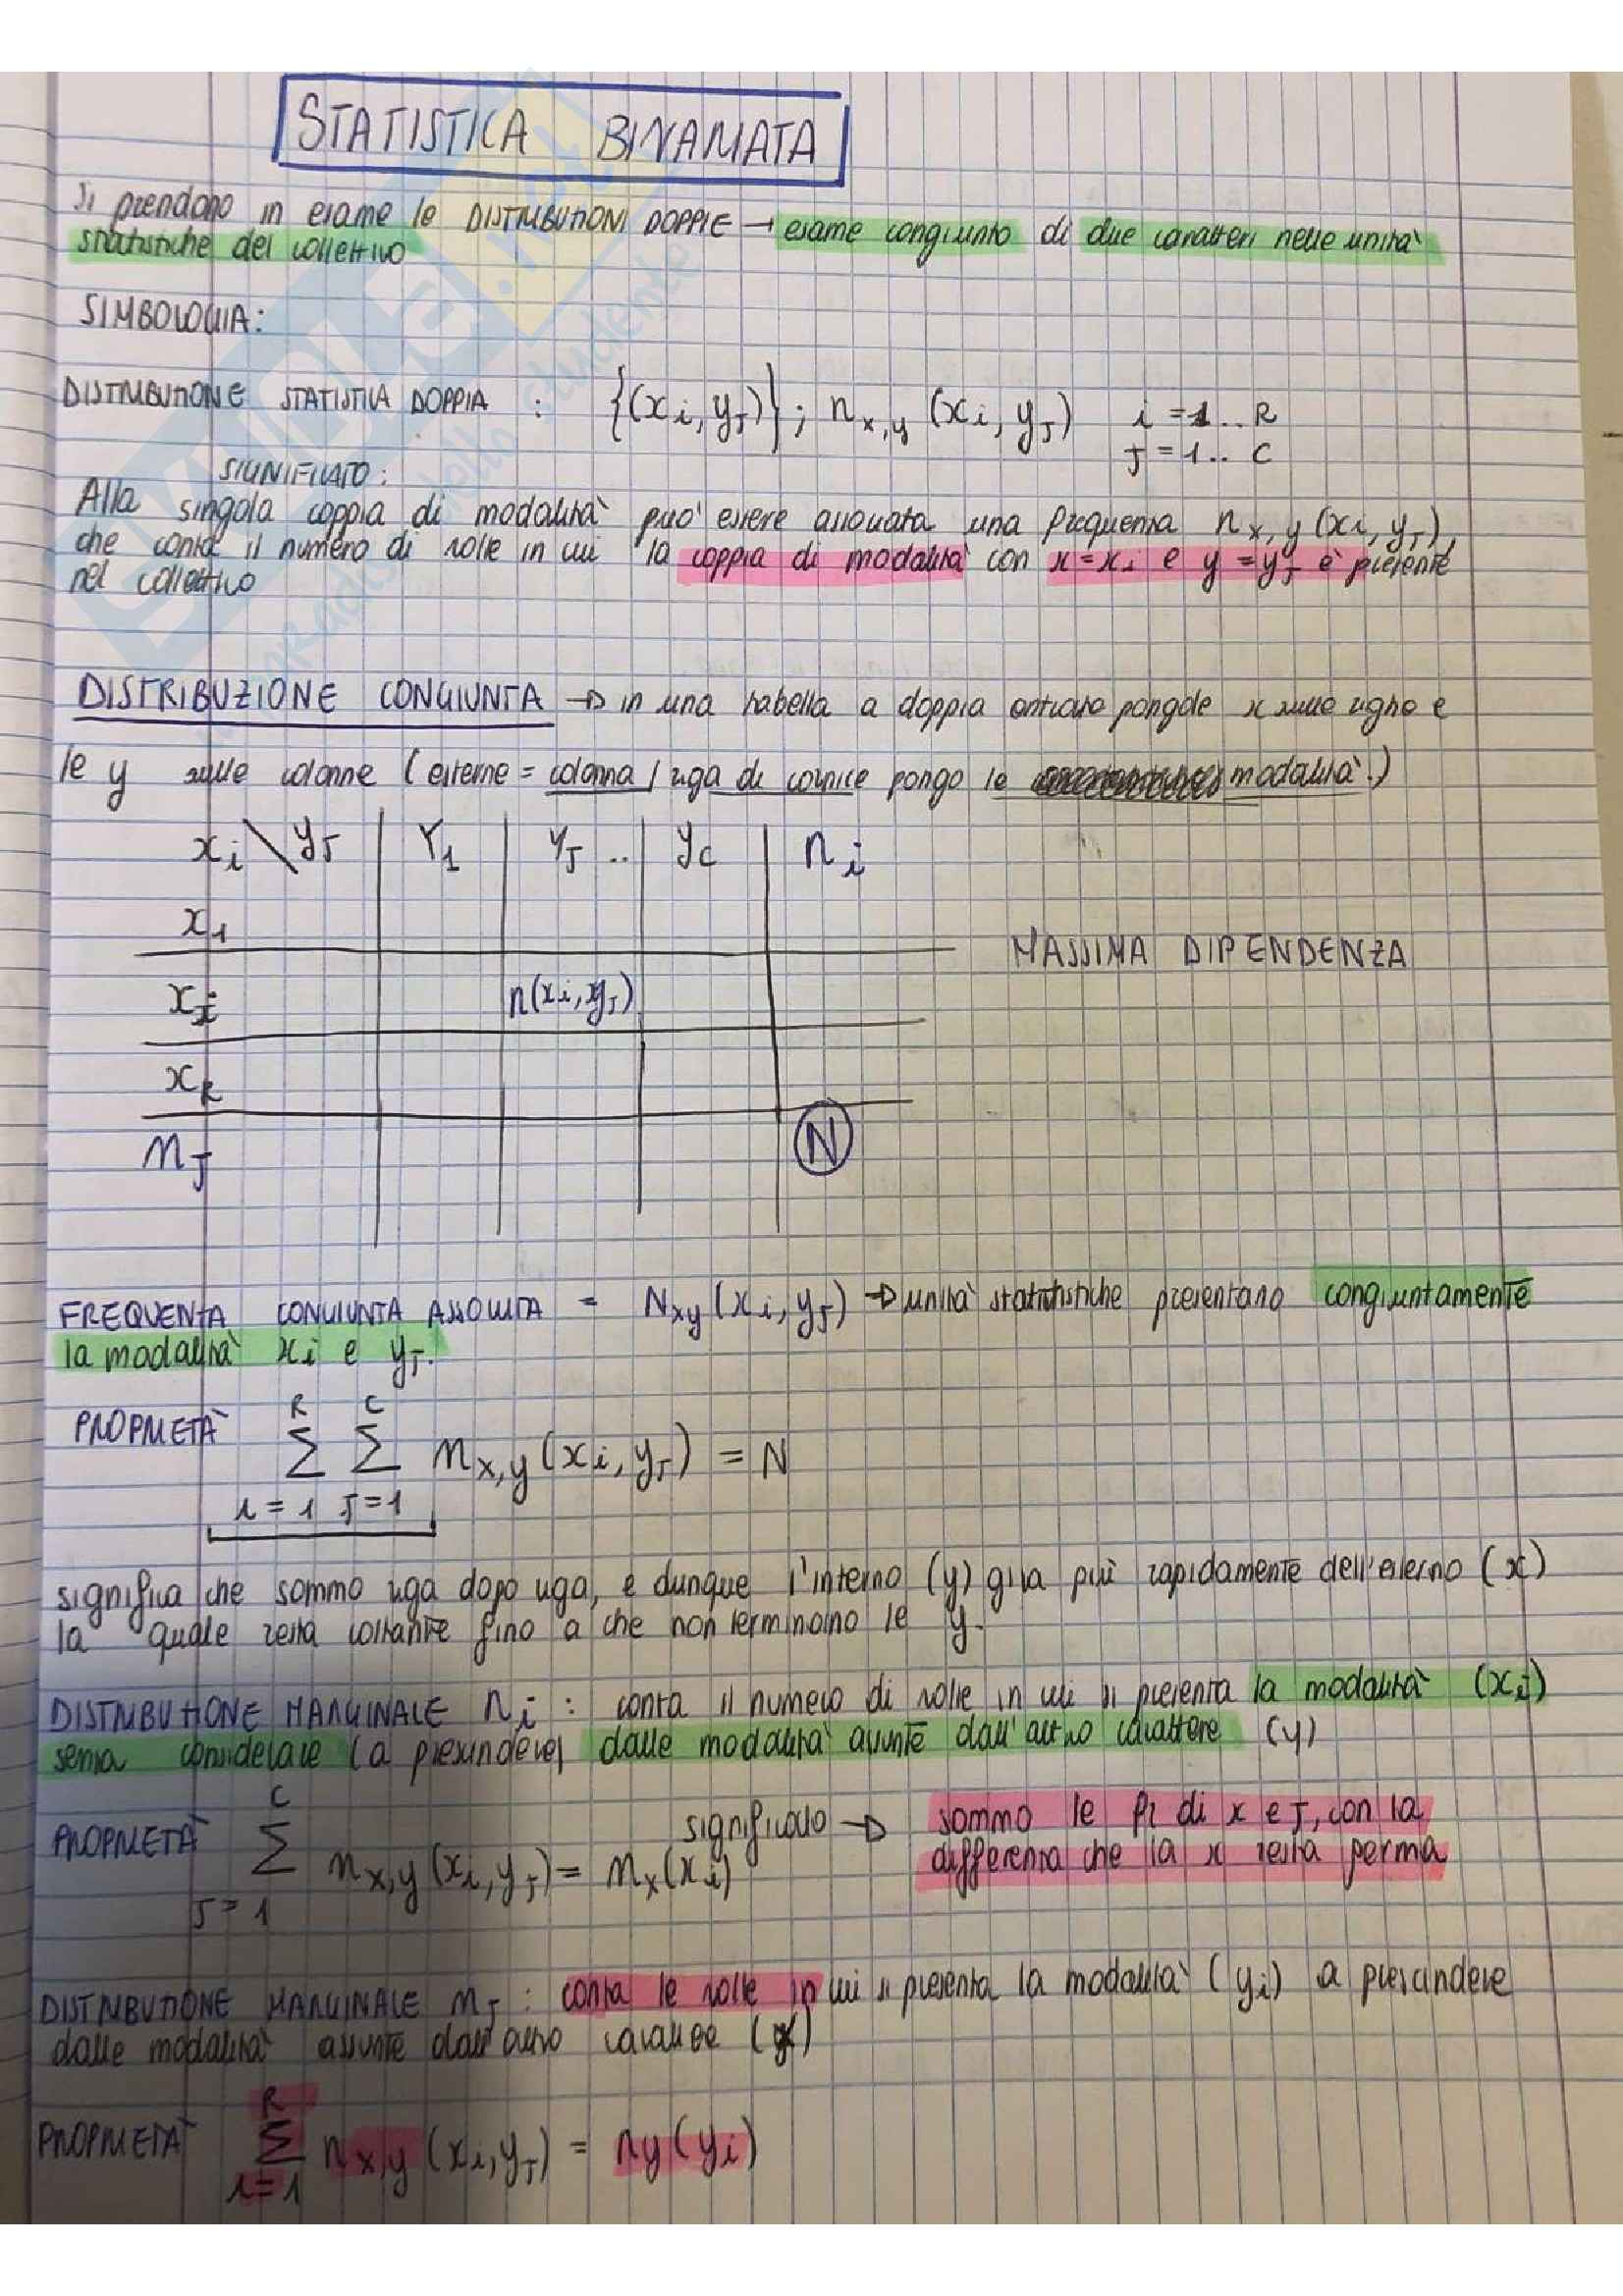 STATISTICA BIVARIATA
Si prendono in esame le DISTRIBUZIONI DOPPIE → esame congiunto di due caratteri nelle unità
statistiche del collettivo
SIMBOLOGIA:
DISTRIBUZIONE STATISTICA DOPPIA : {(xi, yJ)}; nx,y (xi, yJ) i = 1.. R
J = 1.. C
SIGNIFICATO:
Alla singola coppia di modalità può essere associata una frequenza nx,y (xi, yJ),
che conta il numero di volte in cui la coppia di modalità con x = xi e y = yJ è presente
nel collettivo
DISTRIBUZIONE CONGIUNTA → in una tabella a doppia entrata pongo le x sulle righe e
le y sulle colonne (esterne = colonna / riga di cornice pongo le modalità.)
xi \ yJ Y1 YJ .. yC ni
x1
MASSIMA DIPENDENZA
xi n(xi, yJ)
xR
nJ N
FREQUENZA CONGIUNTA ASSOLUTA = Nxy (xi, yJ) → unità statistiche presentano congiuntamente
la modalità xi e yJ.
PROPRIETÀ R∑i=1 C∑J=1 nx,y (xi, yJ) = N
significa che sommo riga dopo riga, e dunque l'interno (y) gira più rapidamente dell'esterno (x)
la quale resta costante fino a che non terminano le y.
DISTRIBUZIONE MARGINALE ni : conta il numero di volte in cui si presenta la modalità (xi)
senza considerare (a prescindere) dalle modalità assunte dall'altro carattere (y)
PROPRIETÀ C∑J=1 nx,y (xi, yJ) = nx(xi) significato → sommo le fr di x e J, con la
differenza che la x resta ferma
DISTRIBUZIONE MARGINALE nJ : conta le volte in cui si presenta la modalità (yi) a prescindere
dalle modalità assunte dall'altro carattere (x)
PROPRIETÀ R∑i=1 nx,y (xi, yJ) = ny (yi)